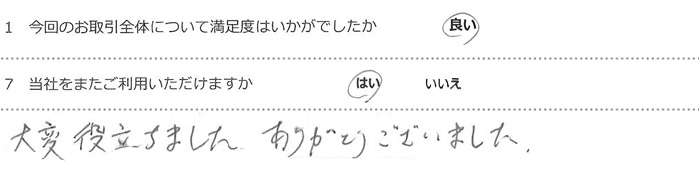 1 今回のお取引全体について満足度はいかがでしたか 良い
7 当社をまたご利用いただけますか はい いいえ
大変役立ちました ありがとうございました.